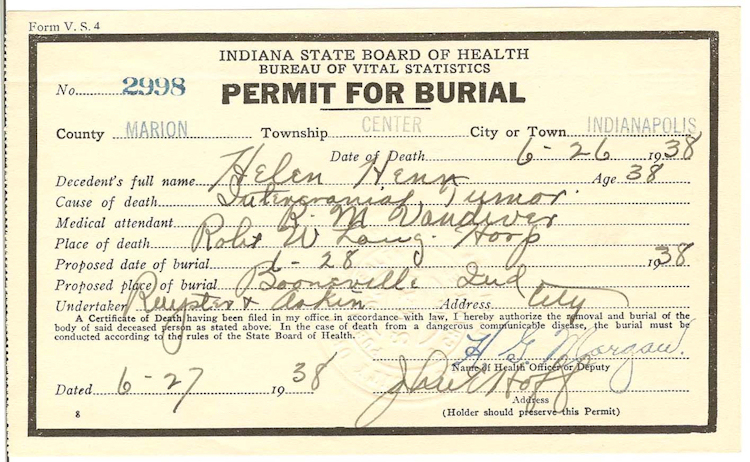 Form V. S. 4
INDIANA STATE BOARD OF HEALTH
BUREAU OF VITAL STATISTICS
No. 2998 PERMIT FOR BURIAL
County MARION Township CENTER City or Town INDIANAPOLIS
Date of Death 6-26 1938
Decedent's full name Helen Henn Age 38
Cause of death Intercranial Tumor.
Medical attendant B. M. Vandiver
Place of death Robt W Long. Hosp
Proposed date of burial 6-28 1938
Proposed place of burial Booneville Ind
Undertaker Royster & Askin Address City
A Certificate of Death having been filed in my office in accordance with law, I hereby authorize the removal and burial of the
body of said deceased person as stated above. In the case of death from a dangerous communicable disease, the burial must be
conducted according to the rules of the State Board of Health.
H G Morgan.
Name of Health Officer or Deputy
Dated 6-27 1938
Address
8 (Holder should preserve this Permit)